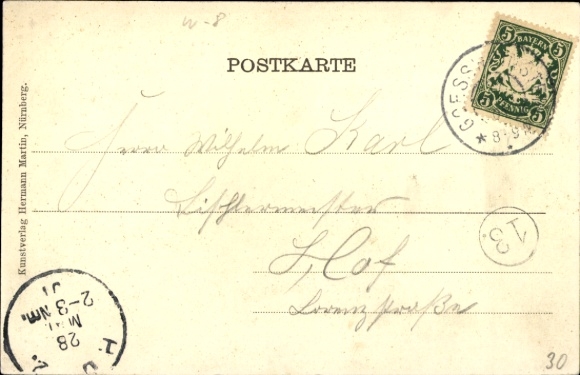 w-8
POSTKARTE
5 BAYERN 5
5 PFENNIG 5
GOESS
8-9
Herrn Wilhelm Karl
Tischlermeister
Hof
Lorenzstraße
13.
Kunstverlag Hermann Martin, Nürnberg.
28
MAI
2-3 Nm.
30